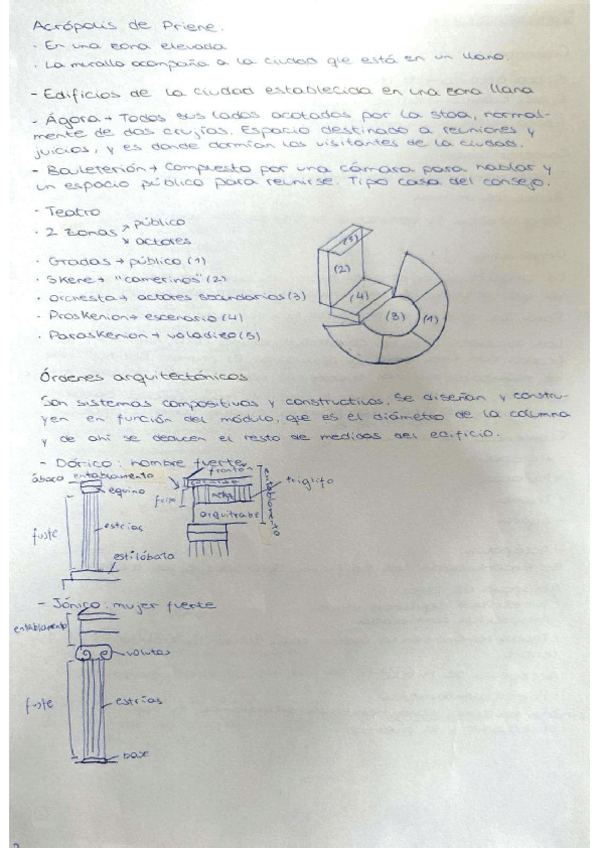 Acrópolis de Priene.
· En una zona elevada
· La muralla acompaña a la ciudad que está en un llano.
- Edificios de la ciudad establecida en una zona llana
- Ágora → Todos sus lados acotados por la stoa, normal-
mente de dos crujías. Espacio destinado a reuniones y
juicios, y es donde dormían los visitantes de la ciudad.
- Bouleterión → Compuesto por una cámara para hablar y
un espacio público para reunirse. Tipo casa del consejo.
· Teatro
· 2 zonas
público
actores
· Gradas → público (1)
· Skene → "camerinos" (2)
· Orchestra → actores secundarios (3)
· Proskenion → escenario (4)
· Paraskenion → voladizo (5)
(5)
(2)
(4)
(3)
(1)
Órdenes arquitectónicos
Son sistemas compositivos y constructivos. Se diseñan y constru-
yen en función del módulo, que es el diámetro de la columna
y de ahí se deducen el resto de medidas del edificio.
- Dórico: hombre fuerte
ábaco
entablamento
equino
fuste
estrías
estilóbato
frontón
cornisa
friso
triglifo
arquitrabe
entablamento
- Jónico: mujer fuerte
entablamento
volutas
fuste
estrías
base